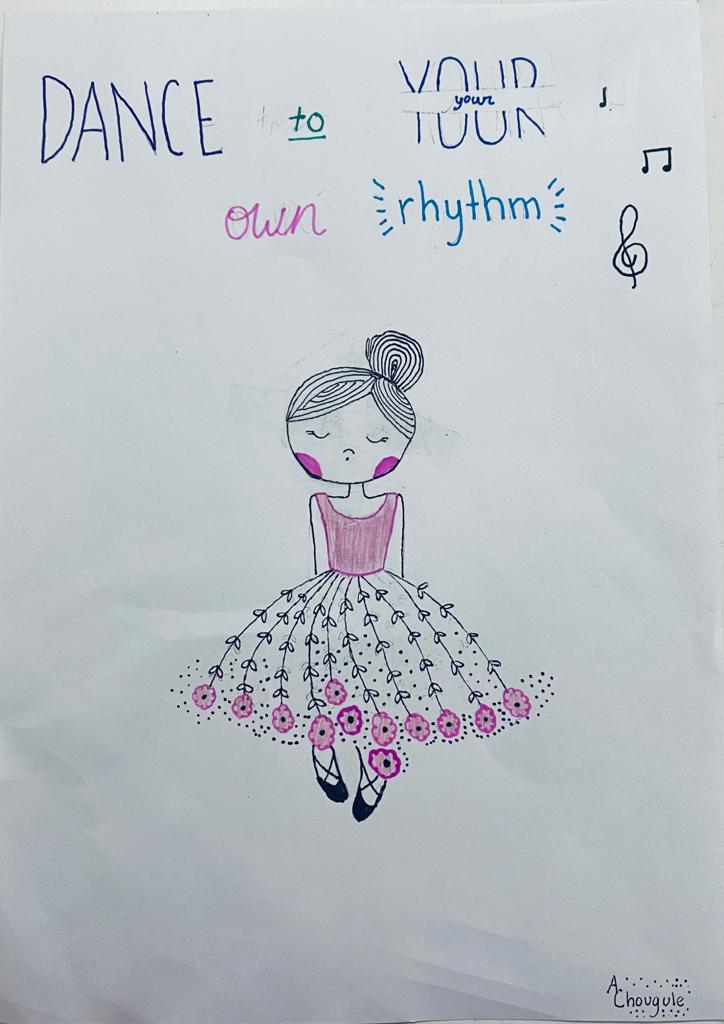 DANCE to YOUR your
own rhythm
A.
Chougule